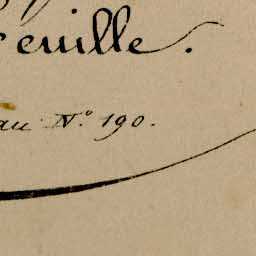 feuille.
au N.º 190.